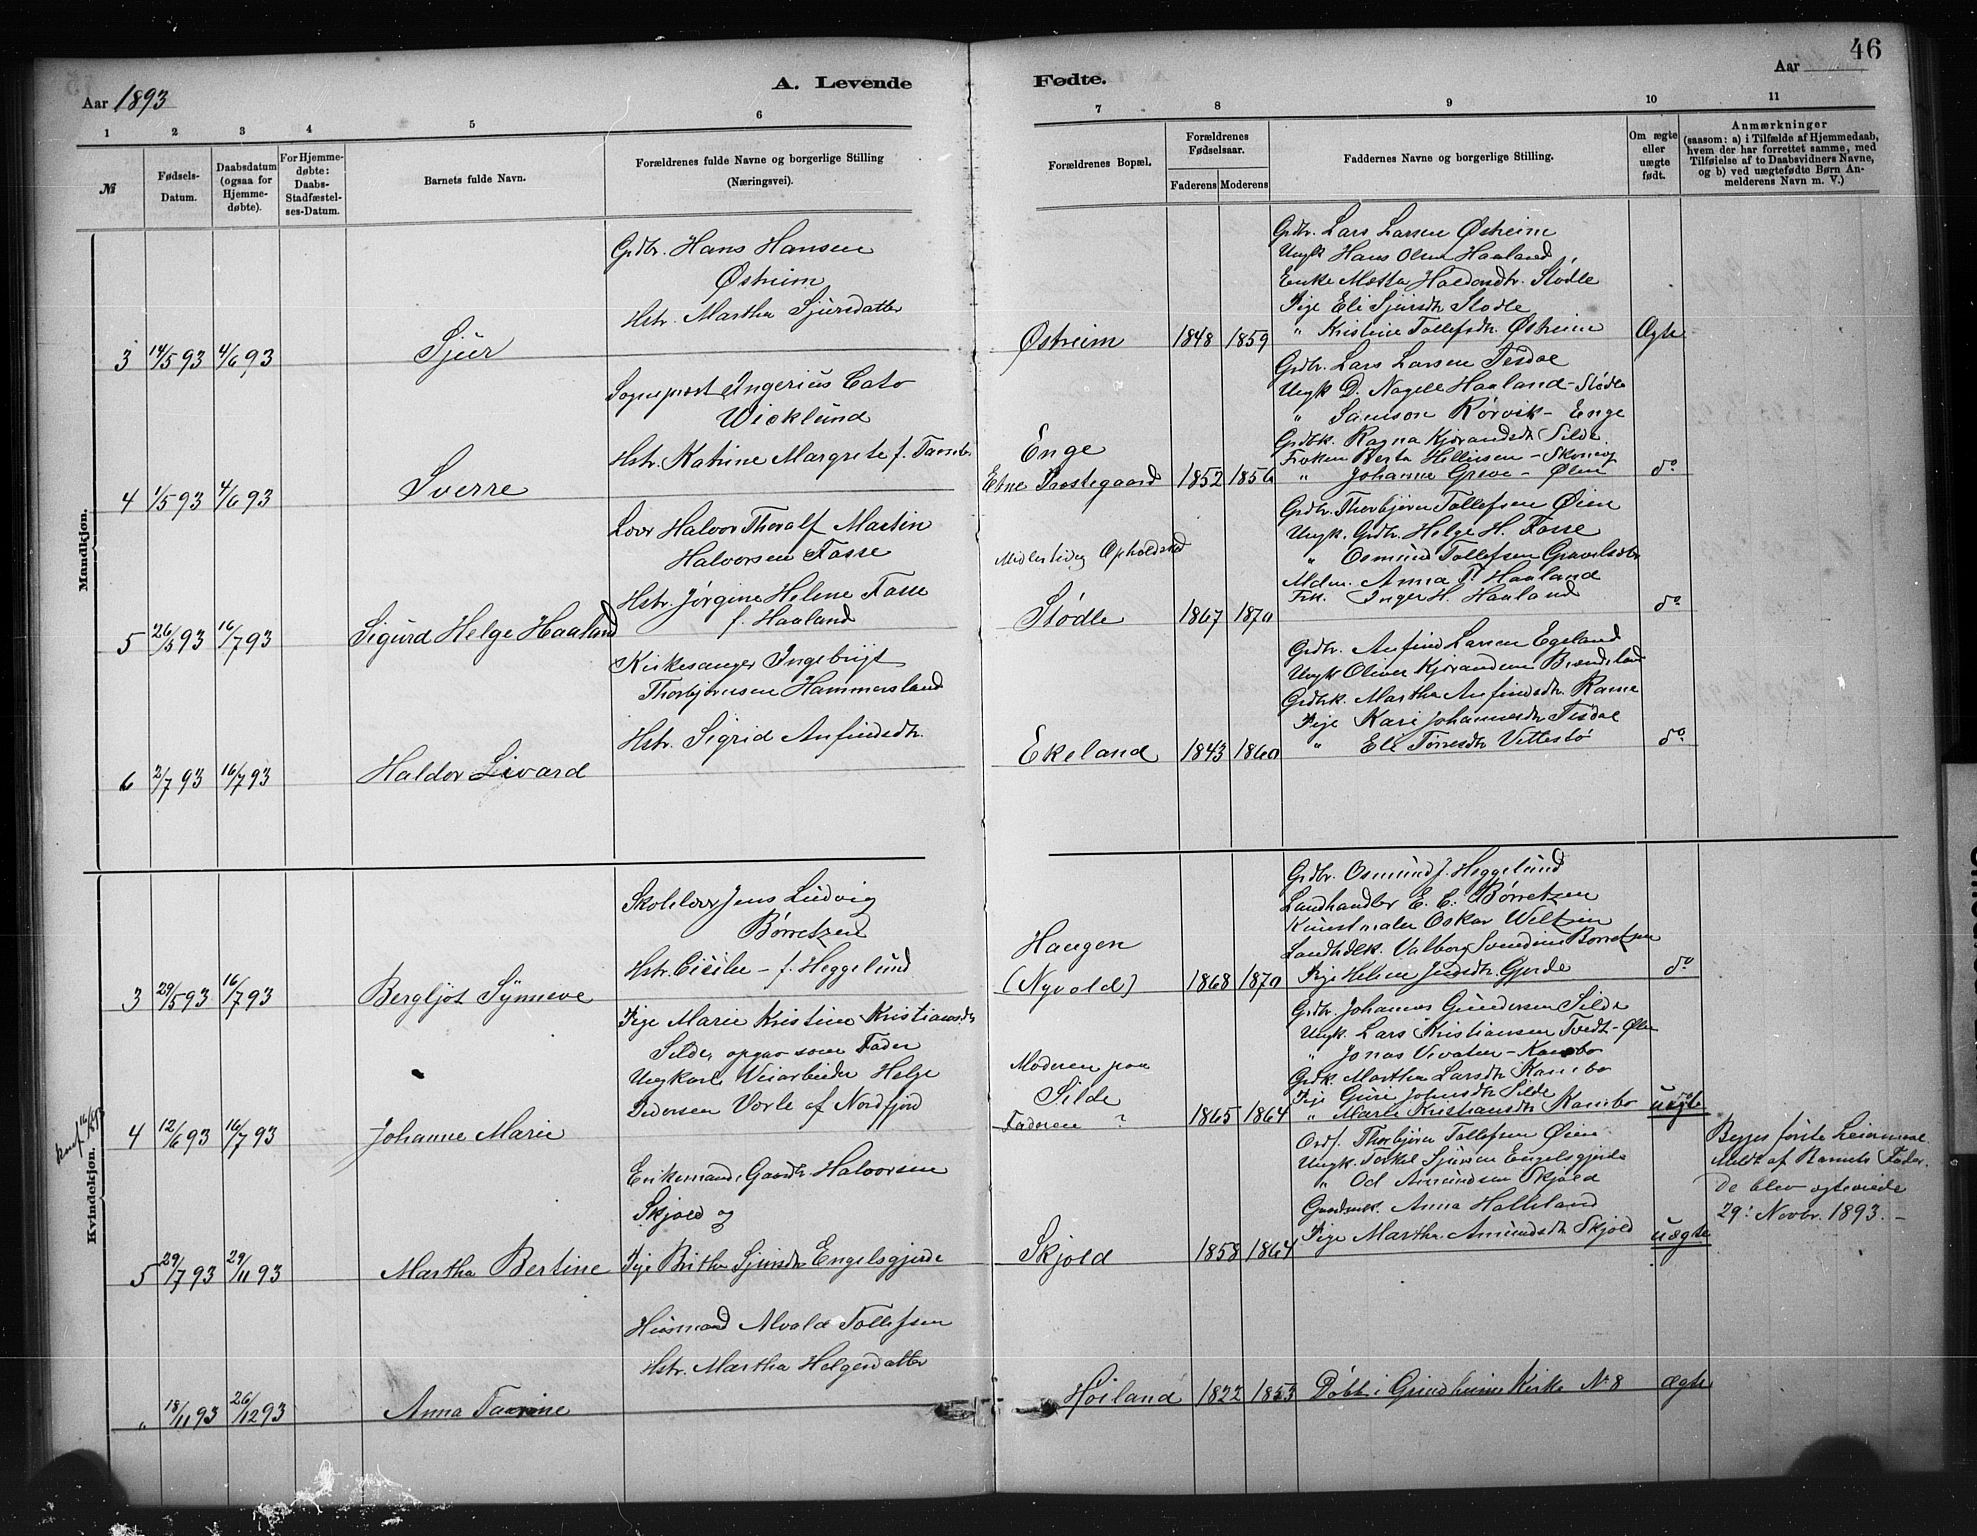 46
A. Levende Fødte.
Aar 1893
Aar
1 2 3 4 5 6 7 8 9 10 11
№
Fødsels-Datum.
Daabsdatum (ogsaa for Hjemme-døbte).
For Hjemme-døbte: Daabs-Stadfæstel-ses-Datum.
Barnets fulde Navn.
Forældrenes fulde Navne og borgerlige Stilling
(Næringsvei).
Forældrenes Bopæl.
Forældrenes Fødselsaar.
Faderens Moderens
Faddernes Navne og borgerlige Stilling.
Om ægte eller uægte født.
Anmærkninger
(saasom: a) i Tilfælde af Hjemmedaab,
hvem der har forrettet samme, med
Tilføielse af to Daabsvidners Navne,
og b) ved uægtefødte Børn An-
melderens Navn m. V.)
Mandkjøn.
Grdbr. Hans Hansen
Østreim
Hstr. Martha Sjursdatter
3 14/5 93 4/6 93 Sjur
Østreim 1848 1859
Grdbr. Lars Larsen Østreim
Ungk Hans Olsen Haaland
Enke Metta Haldorsdtr. Stødle
Pige Eli Sjursdtr Stødle
" Kristine Tollefsdtr. Østreim Ægte
Sogneprest Ingerius Cato
Wicklund
Hstr. Katrine Margrete f.
4 1/5 93 4/6 93 Sverre
Enge
Etne Prestegaard 1852 1856
Grdbr. Lars Larsen Tesdal
Ungk D. Nagell Haaland - Stødle
" Samson Rørvik - Enge
Grdbk. Ragna Kjørandsdtr Silde.
Frøken Berta Hellesen - Skonevig
" Johanna Greve - Ølen do
Lærer Halvor Thoralf Martin
Halvorsen Fosse
Hstr. Jørgine Helene Fosse
f. Haaland
5 26/5 93 16/7 93 Sigurd Helge Haaland
Midlertidig Opholdssted
Stødle 1867 1870
Grdbr. Thorbjørn Tollefsen Øien
Ungk. Grdbr. Helge H. Fosse
" Osmund Tollefsen
Anna T. Haaland
Frk. Inger H. Haaland do
Kirkesanger Ingebrigt
Thorbjørnsen Hammersland
Hstr. Sigrid Anfindsdtr.
6 2/7 93 16/7 93 Haldor Sivard
Ekeland 1843 1860
Grdbr. Anfind Larsen Egeland
Ungk Oliver Kjørandsen
Grdbk. Martha Anfindsdtr. Rame
Pige Kari Johannesdtr Tesdal
" Eli Tørresdtr Vittestø do
Kvindekjøn.
Skolelærer Jens Ludvig
Børretzen
Hstr. Cicilie - f. Heggelund
3 29/5 93 16/7 93 Bergljot Synneve
Haugen
(Nyvold) 1868 1870
Grdbr. Osmund J. Heggelund
Landhandler E. C. Børretzen
Kunstmaler Oskar Weltzien
Valborg Svendine Børretzen
Pige Helene Gjerde do
Pige Marie Kristine Kristiansdtr
Silde, opgav som Fader
Ungkarl Veiarbeider Helge
Pedersen Vorle af Nordfjord
4 12/6 93 16/7 93 Johanne Marie
Moderen paa
Silde
Faderen ? 1865 1864
Grdbr Johannes Gundersen Silde
Ungk. Lars Kristiansen Tvedt - Ølen
" Jonas Kambo
Grdk. Martha Larsdtr Kambo
Pige Guri Johnsdtr Silde
" Marta Kristiansdtr Kambo uægte
Enkemand, Gaardbr Halvorsen
Skjold og
Pige Britha Sjursdtr Engelsgjerde
5 29/7 93 29/11 93 Martha Bertine
Skjold 1858 1864
Thorbjørn Tollefsen Øien
Ungk. Torkel Sjursen Engelsgjerde
" Od Amundsen Skjold
Anna Halleland
Pige Martha Amundsdtr Skjold uægte
Begges første Leiermaal.
Meldt af Barnets Fader.
De blev ægteviede
29: Novbr. 1893. -
Husmand Alvald Tollefsen
Hstr. Martha Helgesdatter
" 18/11 93 26/12 93 Anna Taarine
Høiland 1822 1853 Døbt i Grindheims Kirke № 8 ægte